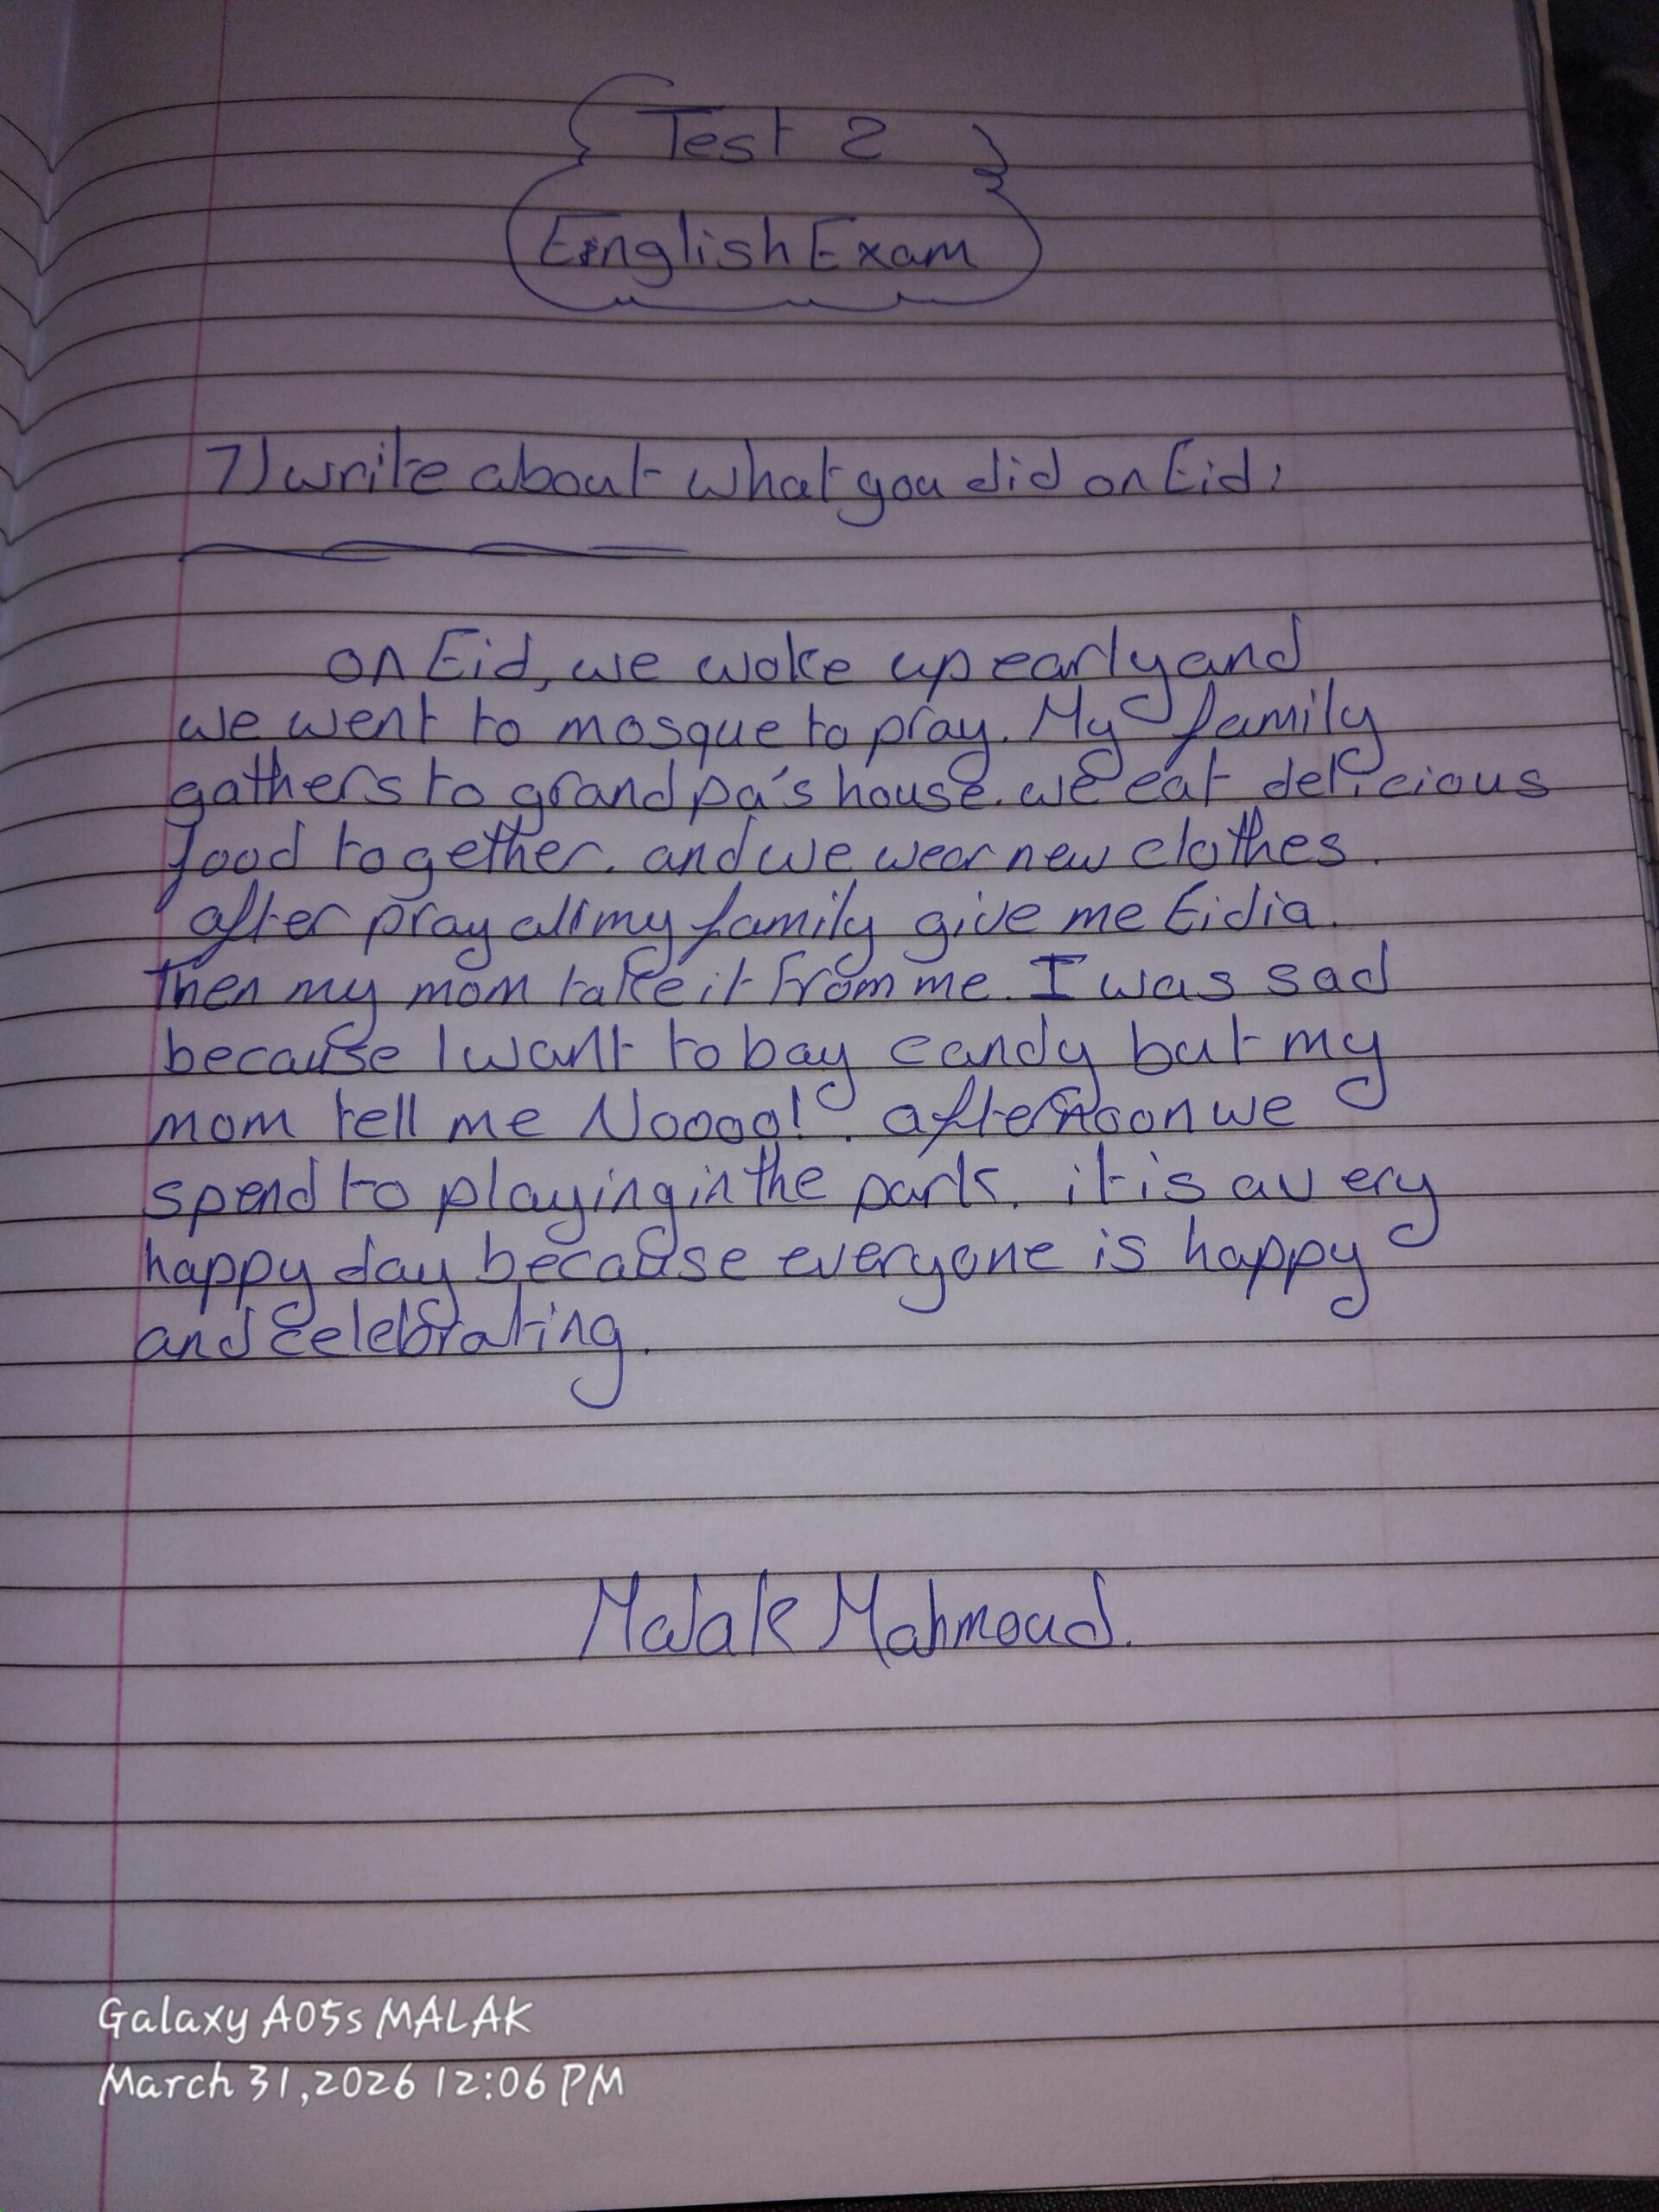 Test 2
English Exam
7) write about what you did on Eid:
on Eid, we woke up early and
we went to mosque to pray. My family
gathers to grand pa's house. we eat delicious
food together. and we wear new clothes.
after pray all my family give me Eidia.
Then my mom take it from me. I was sad
because I want to bay candy but my
mom tell me Noooo! . afternoon we
spend to playing in the park. it is a very
happy day because everyone is happy
and celebrating.
Malak Mahmoud.
Galaxy A05s MALAK
March 31,2026 12:06 PM